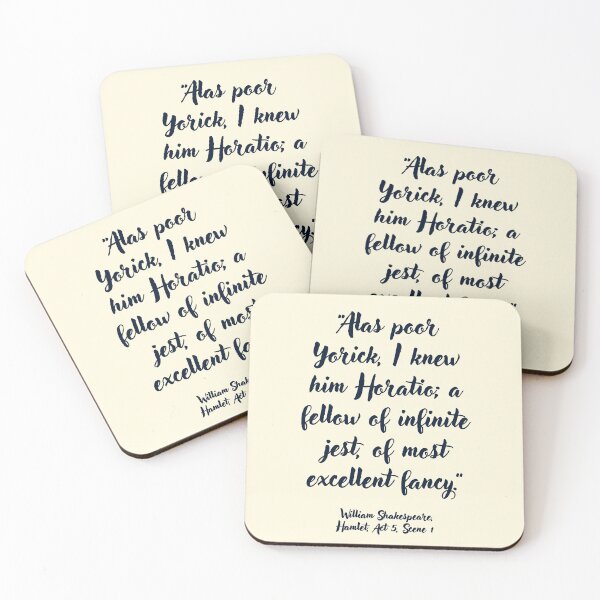 "Alas poor
Yorick, I knew
him Horatio; a
fellow
infinite
"Alas poor
Yorick, I knew
him Horatio; a
fellow of infinite
jest, of most
"Alas poor
Yorick, I knew
him Horatio; a
fellow of infinite
jest, of most
excellent fancy
William
Hamlet, Act
"Alas poor
Yorick, I knew
him Horatio; a
fellow of infinite
jest, of most
excellent fancy."
William Shakespeare,
Hamlet, Act 5, Scene 1